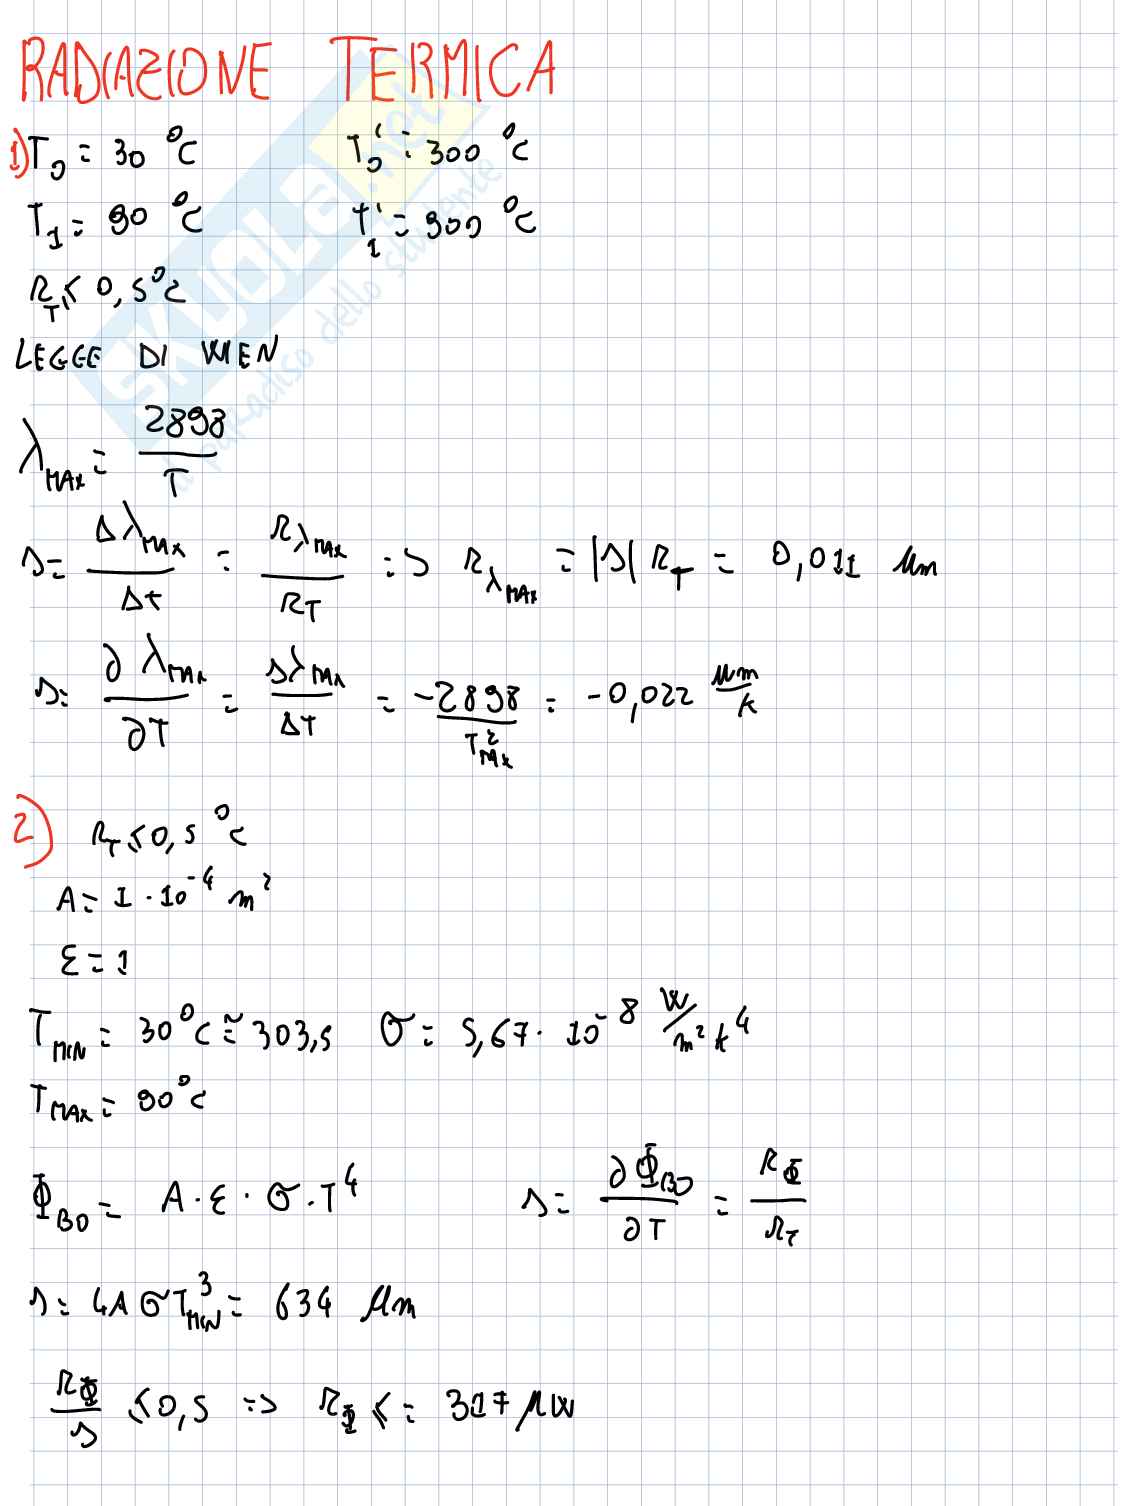 RADIAZIONE TERMICA
1) T₀ = 30 °C T₀' = 300 °C
T₁ = 90 °C T₁' = 900 °C
R_T ≤ 0,5 °C
LEGGE DI WIEN
λ_MAX = 2898 / T
s = Δλ_MAX / Δt = R_λMAX / R_T => R_λMAX = |s| R_T = 0,011 μm
s = ∂λ_MAX / ∂T = Δλ_MAX / ΔT = -2898 / T²_MAX = -0,022 μm/K
2) R_T ≤ 0,5 °C
A = 1 · 10⁻⁴ m²
ε = 1
T_MIN = 30 °C ≅ 303,5 σ = 5,67 · 10⁻⁸ W/m² K⁴
T_MAX = 90 °C
Φ_BO = A · ε · σ · T⁴ s = ∂Φ_BO / ∂T = R_Φ / R_T
s = 4A σ T³_MIN = 634 μm
R_Φ / s ≤ 0,5 => R_Φ ≤ = 317 μW
SKUOLA.net
il paradiso dello studente